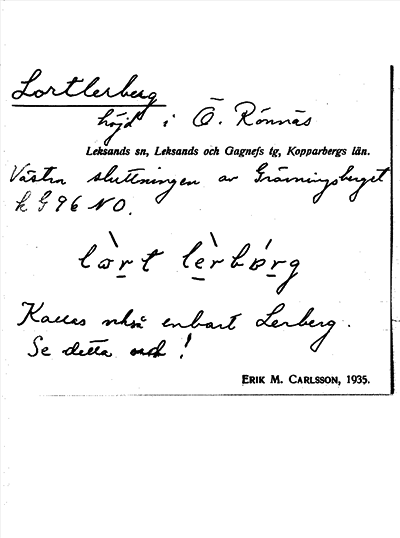 Lortlerberg
höjd i Ö. Rönnäs
Leksands sn, Leksands och Gagnefs tg, Kopparbergs län.
Västra sluttningen av Gräsningsberget
k G 96 NO.
lòrt lèrbǿrg
Kallas också enbart Lerberg.
Se detta ord!
ERIK M. CARLSSON, 1935.